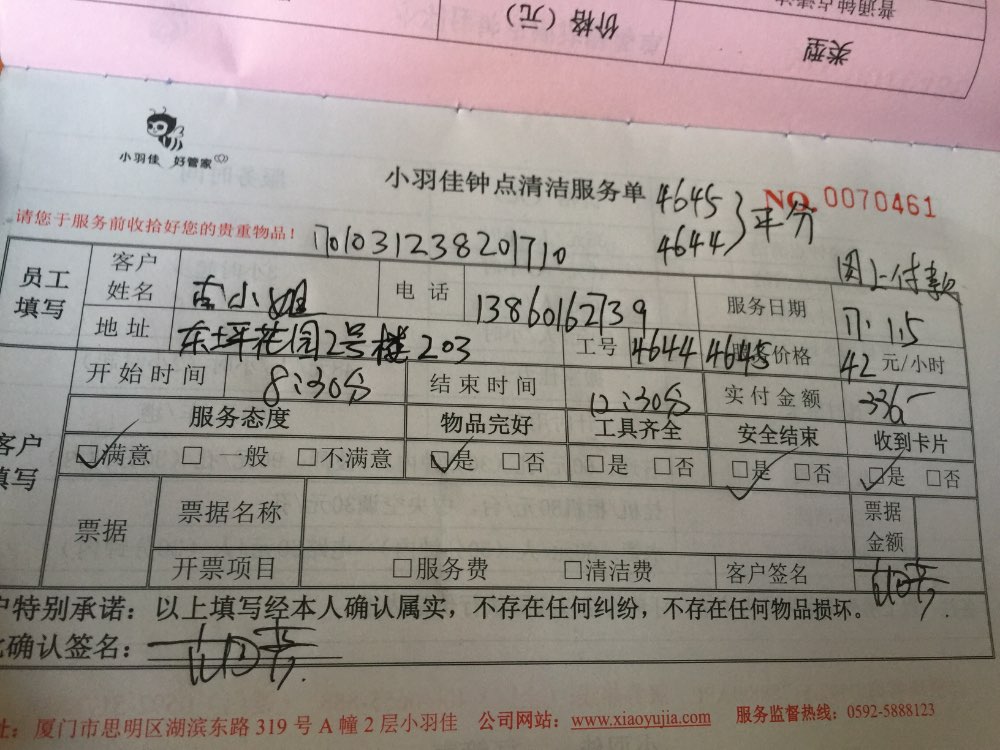 普通钟点清洁
类型
价格（元）
小羽佳 好管家
小羽佳钟点清洁服务单
4645
4644
平分
NO. 0070461
请您于服务前收拾好您的贵重物品！
1701031238201710
网上付款
员工填写
客户姓名
小姐
电话
13860162739
服务日期
17.1.5
地址
东坪花园2号楼203
工号
4644 4645
服务价格
42 元/小时
开始时间
8:30分
结束时间
12:30分
实付金额
336-
客户填写
服务态度
物品完好
工具齐全
安全结束
收到卡片
☑满意 □一般 □不满意
☑是 □否
□是 □否
☑是 □否
☑是 □否
票据
票据名称
票据金额
开票项目
□服务费 □清洁费
客户签名
户特别承诺：以上填写经本人确认属实，不存在任何纠纷，不存在任何物品损坏。
此确认签名：
址：厦门市思明区湖滨东路 319 号 A 幢 2 层小羽佳 公司网站：www.xiaoyujia.com 服务监督热线：0592-5888123